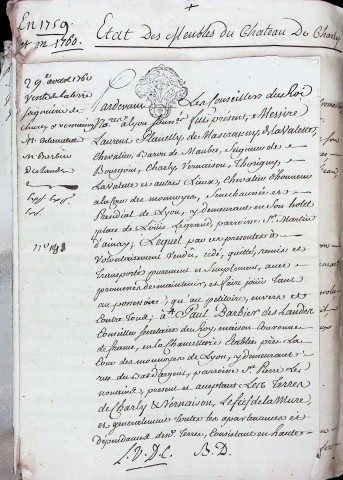 En 1759.
et en 1760.
Etat Des Meubles du Chateau De Charly
29 avril 1760
Vente de la terre
seigneurie de
charly & vernaison
M.
M. Barbier
Deslandes
n.°
Pardevant Les Conseillers du Roi
No.res a Lyon Soun.es fut present, Messire
Laurent Planelly de Mascranny de la Valette,
Chevalier, Baron de Maubec, seigneur de
Bourgoin, Charly, Vernaison, Thorigny,
Lavalette et autres Lieux, Chevalier d'honneur
en la Cour des monnoyes, Senechaussée et
Presidial de Lyon, y demeurant en son hotel
place de Loüis Legrand, parroisse St. Martin
d'ainay; Lequel par ces presentes a
Volontairement Vendu, cedé, quitté, remis et
transporté purement et simplement, avec
promesse de maintenir, et faire joüir tant
au possessoire, qu'au petitoire, envers et
Contre Tous; à Mr. Paul Barbier des Landes
Conseiller secretaire du Roy, maison Couronne
de france, en la Chancellerie Etablie près La
Cour des monnoyes de Lyon, y demeurant
rue du Basdargent, parroisse St. Pierre Les
nonains, present et acceptant Les Terres
de Charly & Vernaison, Le fief de la Mure,
et generalement toutes les apartenances et
dépendances desd. Terres, Consistant en haute
L. V. D. C. B. D.